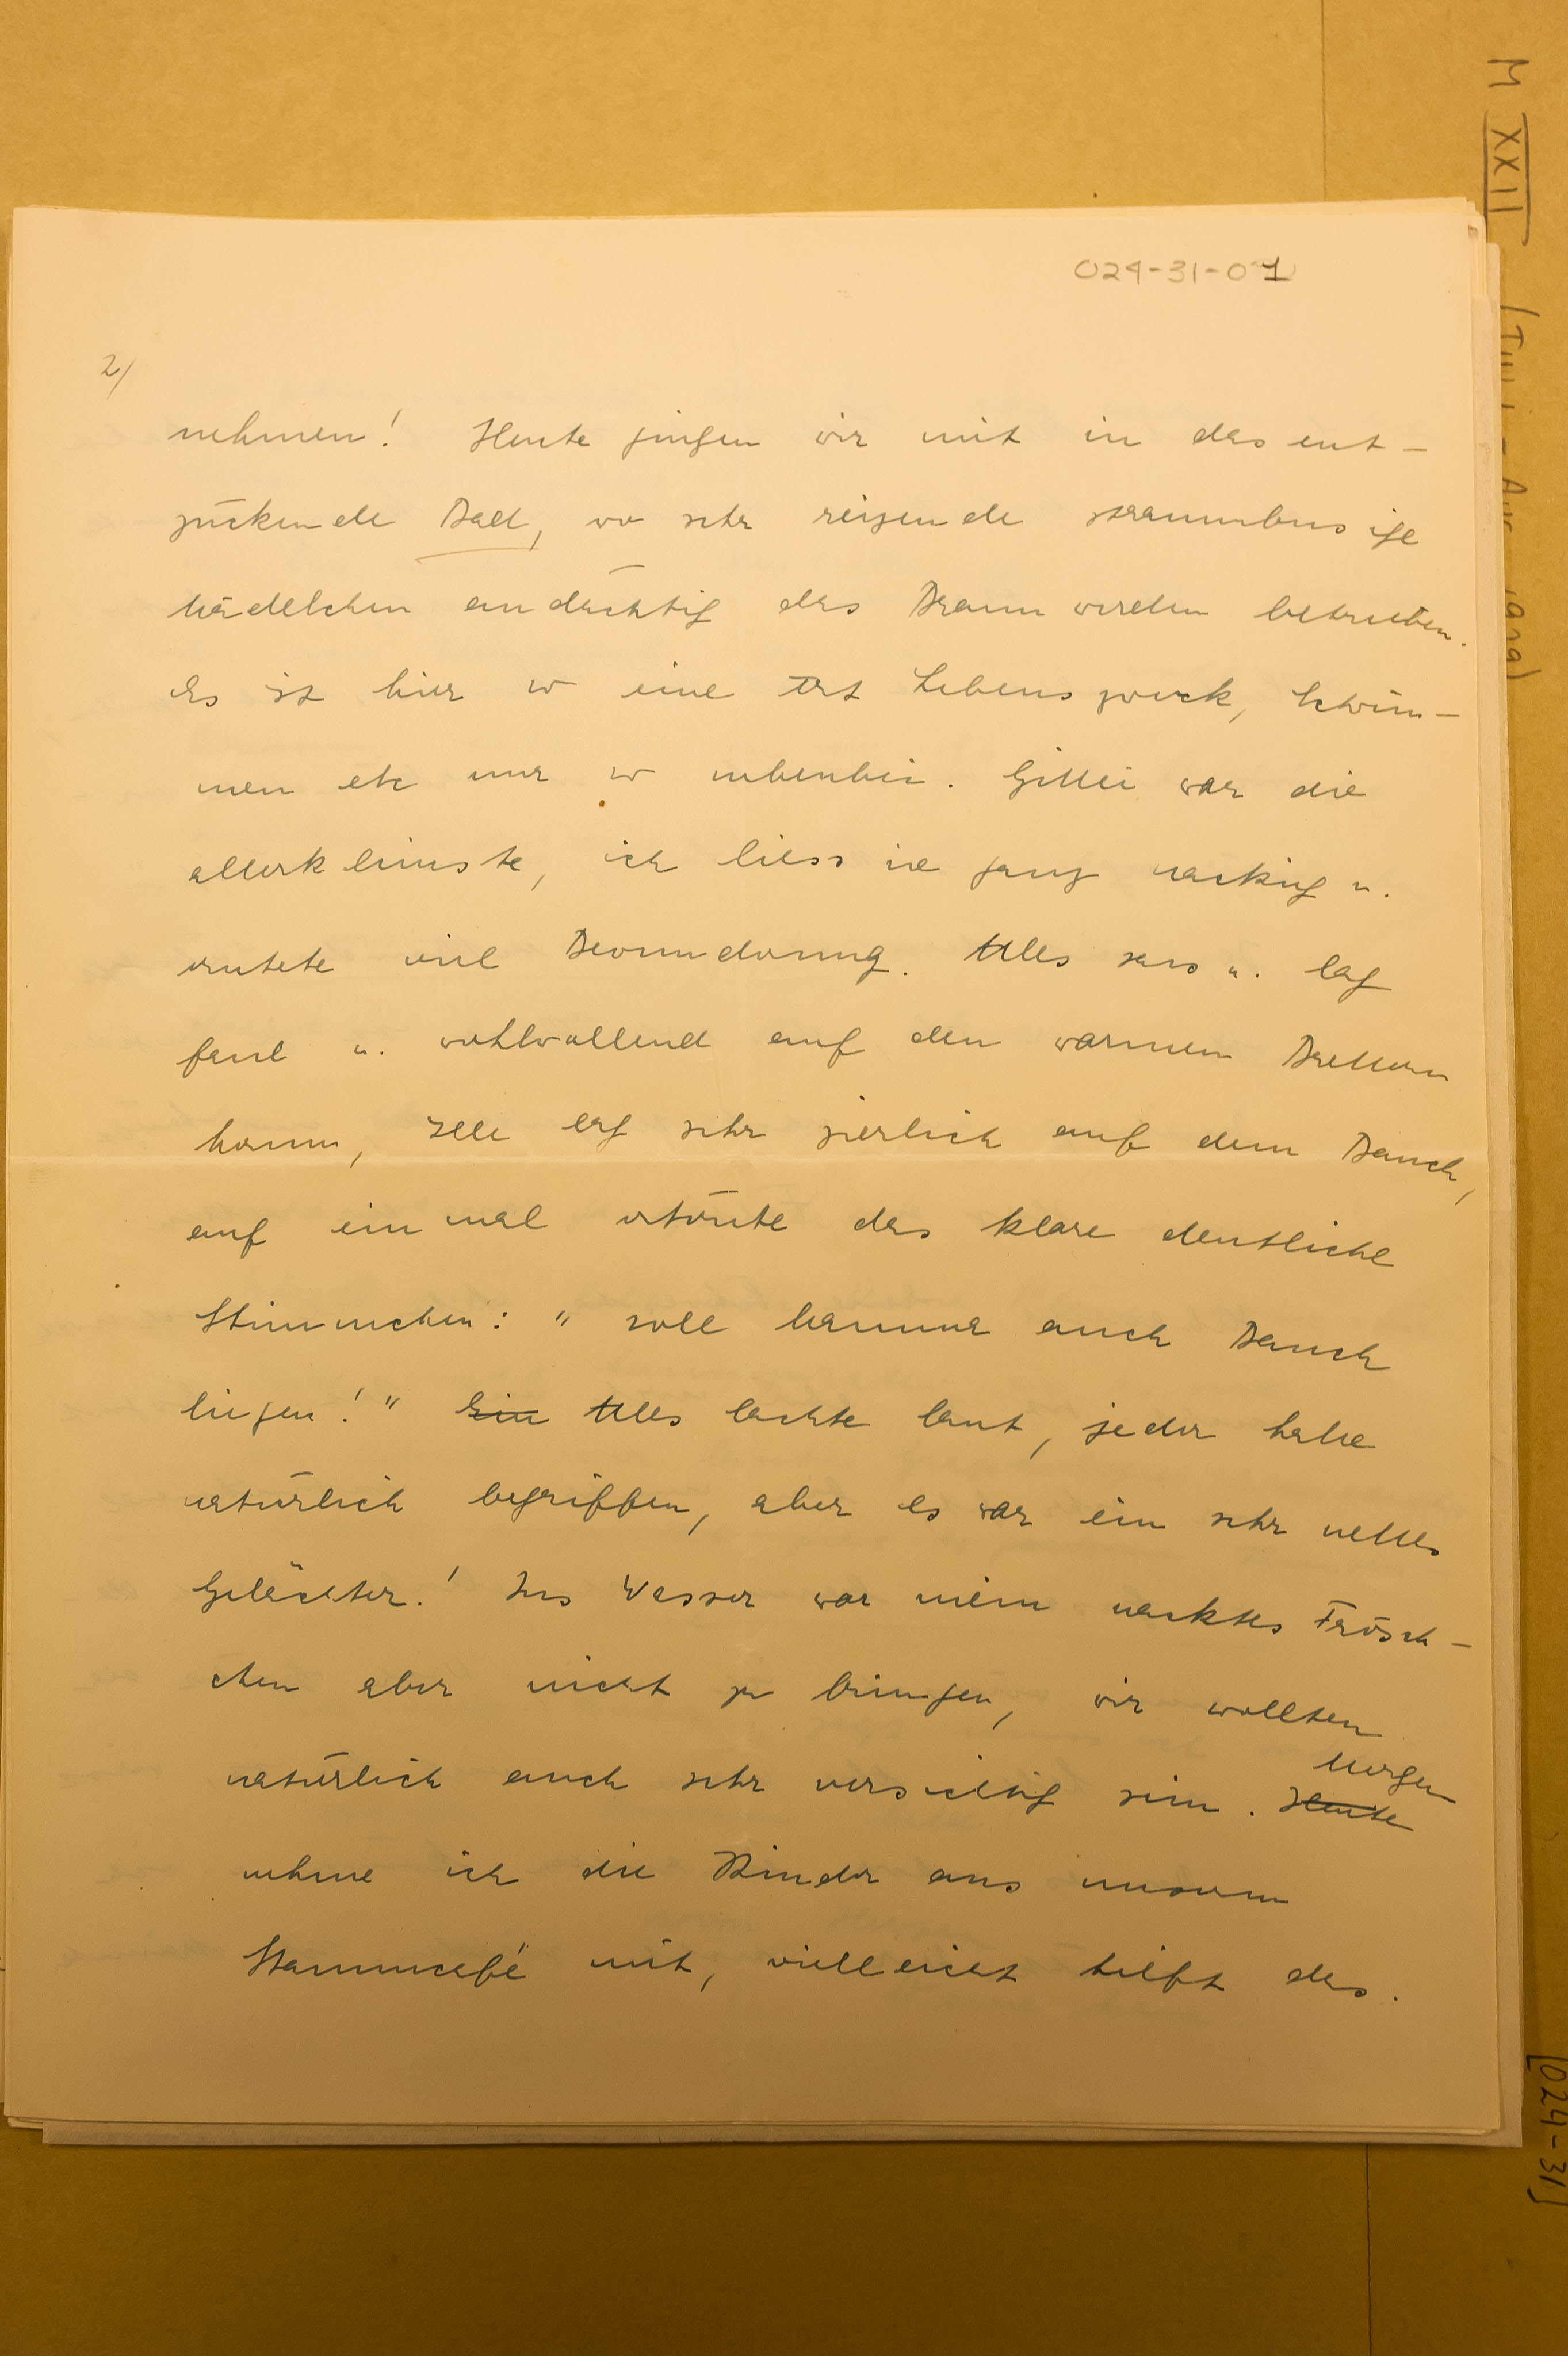 M XXII
024-31-01
2/
nehmen! Heute gingen wir mit in das ent-
zückende Bad, wo sehr reizende strammbusige
Mädelchen andächtig das Braunwerden betrieben.
Es ist hier so eine Art Lebenszweck, Schwim-
men etc nur so nebenbei. Gittei war die
allerkleinste, ich liess sie ganz nackig u.
erntete viel Bewunderung. Alles sass u. lag
faul u. wohlwollend auf den warmen Brettern
herum, lag sehr zierlich auf dem Bauch,
auf einmal ertönte das klare deutliche
Stimmchen: " soll Mamma auch Bauch
liegen!" Ein Alles lachte laut, jeder hatte
natürlich begriffen, aber es war ein sehr nettes
Gelächter! Ins Wasser war mein nacktes Frösch-
chen aber nicht zu bringen, wir wollten
natürlich auch sehr versichtig sein. Heute Morgen
nehme ich die Kinder aus unserm
Stammcafé mit, vielleicht hilft das.
[024-31]